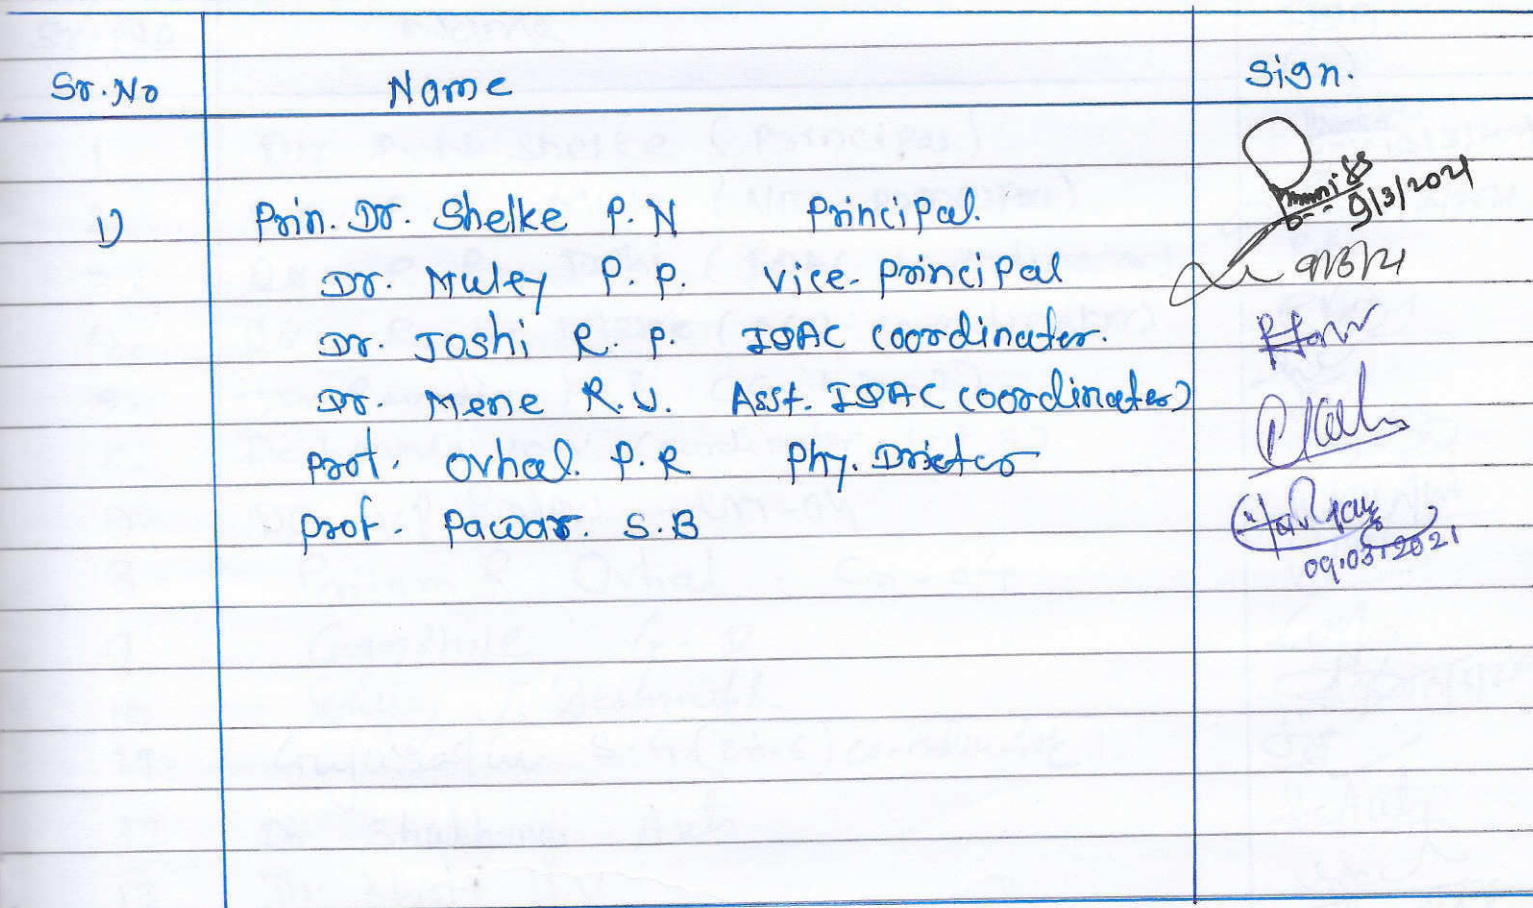 Sr.No Name Sign.
1) Prin. Dr. Shelke P.N Principal. 9/3/2021
Dr. Muley P.P. Vice-Principal 9/3/21
Dr. Joshi R.P. IQAC Coordinater.
Dr. Mene R.V. Asst. IQAC Coordinater
Prof. Ovhal. P.R Phy.
Prof. Pawar. S.B
09.03.2021